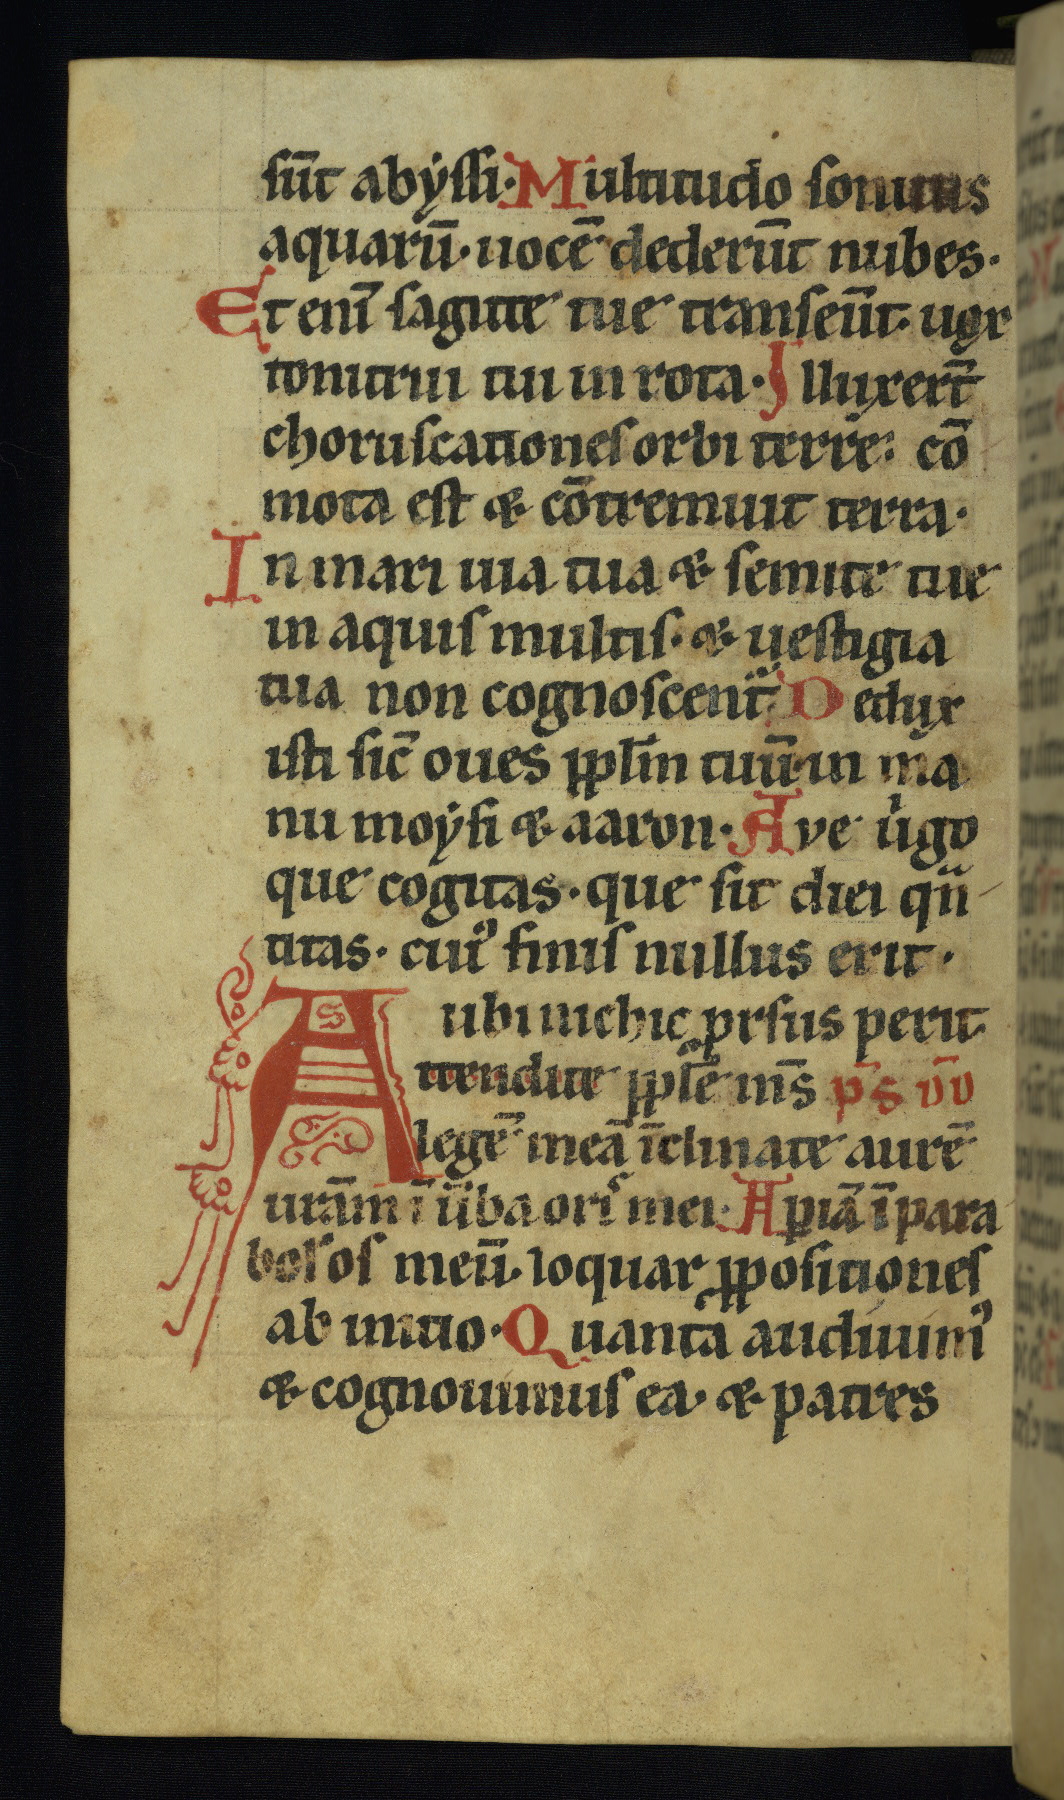 sūt abẏssi· Multitudo sonitus
aquarū· uocē dederūt nubes·
Et enī sagitte tue transeūt· uox
tonitrui tui in rota· Illuxert̄
choruscationes orbi terre: cō
mota est & cōtremuit terra·
In mari uia tua & semite tue
in aquis multis· & uestigia
tua non cognoscent̄· Dedux
isti sic̄ oues pplm̄ tuū in ma
nu moẏsi & aaron· Ave u̍go
que cogitas· que sit diei qn̄
titas· cui᾽ finis nullus erit·
ubi nichic prsus perit
Attendite pple ms̄ p̄s v̄v
legē meā īclinate aurē
urām ī ūba oris mei· Apiā ī para
bolis os meū· loquar ppositiones
ab initio· Quanta audiuim᾽
& cognouimus ea· & patres